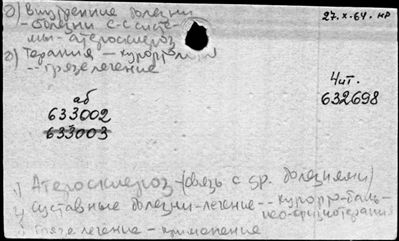 а) Внутренние болезни
- болезни с-с систе-
мы - атеросклероз
б) Терапия - курорт
-- грязелечение
27.X.64. нр
Чит.
632698
аб
633002
633003
1) Атеросклероз - (связь с др. болезнями)
2) Суставные болезни - лечение -- курорто-баль-
нео-физиотерапия
3) Грязелечение - применение